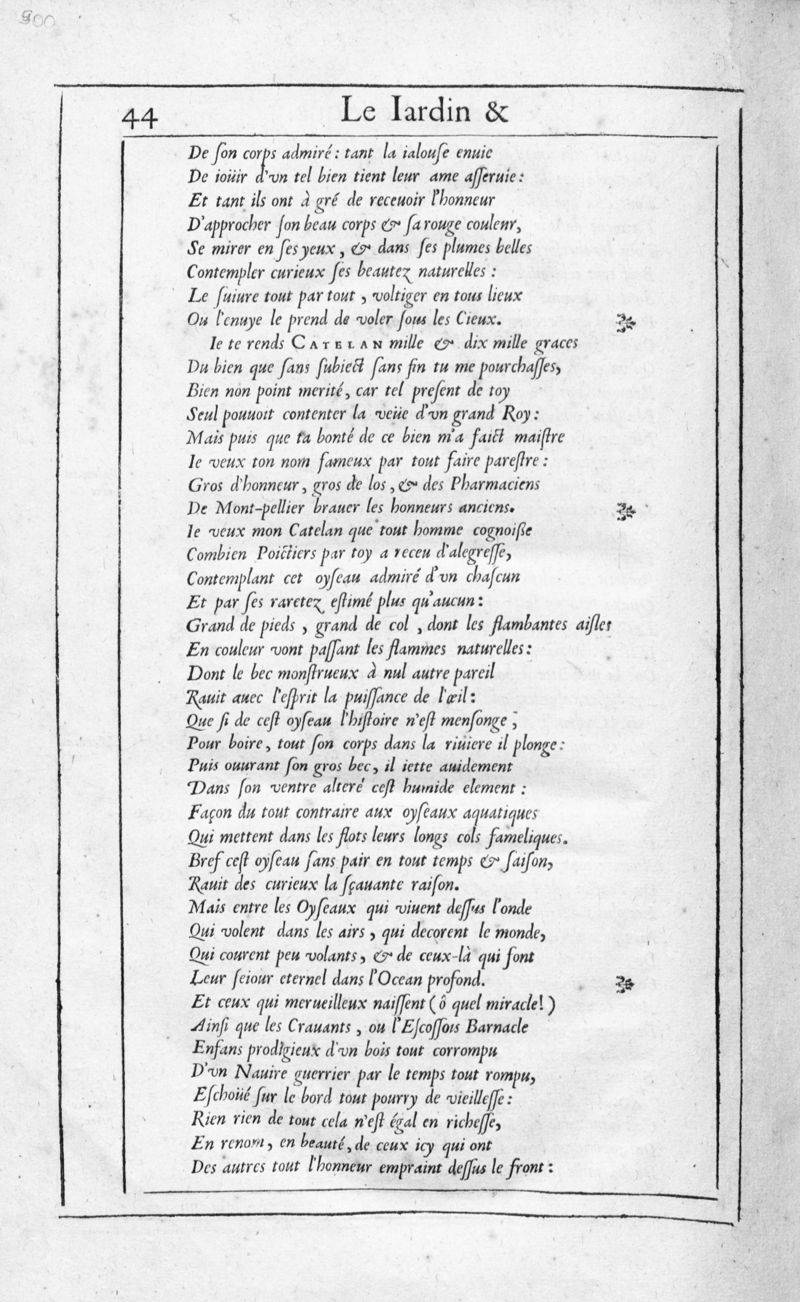 900
44 Le Iardin &
De ſon corps admiré: tant la ialouſe enuie
De ioüir d'vn tel bien tient leur ame aſſeruie:
Et tant ils ont à gré de receuoir l'honneur
D'approcher ſon beau corps & ſa rouge couleur,
Se mirer en ſes yeux, & dans ſes plumes belles
Contempler curieux ſes beautez naturelles:
Le ſuiure tout par tout, voltiger en tous lieux
Ou l'enuye le prend de voler ſous les Cieux.
Ie te rends CATELAN mille & dix mille graces
Du bien que ſans ſubiect ſans fin tu me pourchaſſes,
Bien non point merité, car tel preſent de toy
Seul pouuoit contenter la veüe d'vn grand Roy:
Mais puis que ta bonté de ce bien m'a faict maiſtre
Ie veux ton nom fameux par tout faire pareſtre:
Gros d'honneur, gros de los, & des Pharmaciens
De Mont-pellier brauer les honneurs anciens.
Ie veux mon Catelan que tout homme cognoiße
Combien Poictiers par toy a receu d'alegreſſe,
Contemplant cet oyſeau admiré d'vn chaſcun
Et par ſes raretez eſtimé plus qu'aucun:
Grand de pieds, grand de col, dont les flambantes aiſles
En couleur vont paſſant les flammes naturelles:
Dont le bec monſtrueux à nul autre pareil
Rauit auec l'eſprit la puiſſance de l'œil:
Que ſi de ceſt oyſeau l'hiſtoire n'eſt menſonge,
Pour boire, tout ſon corps dans la riuiere il plonge:
Puis ouurant ſon gros bec, il iette auidement
Dans ſon ventre alteré ceſt humide element:
Façon du tout contraire aux oyſeaux aquatiques
Qui mettent dans les flots leurs longs cols fameliques.
Bref ceſt oyſeau ſans pair en tout temps & ſaiſon,
Rauit des curieux la ſçauante raiſon.
Mais entre les Oyſeaux qui viuent deſſus l'onde
Qui volent dans les airs, qui decorent le monde,
Qui courent peu volants, & de ceux-là qui font
Leur ſeiour eternel dans l'Ocean profond.
Et ceux qui merueilleux naiſſent (ô quel miracle!)
Ainſi que les Crauants, ou l'Eſcoſſois Barnacle
Enfans prodigieux d'vn bois tout corrompu
D'vn Nauire guerrier par le temps tout rompu,
Eſchoüé ſur le bord tout pourry de vieilleſſe:
Rien rien de tout cela n'eſt égal en richeſſe,
En renom, en beauté, de ceux icy qui ont
Des autres tout l'honneur empraint deſſus le front: